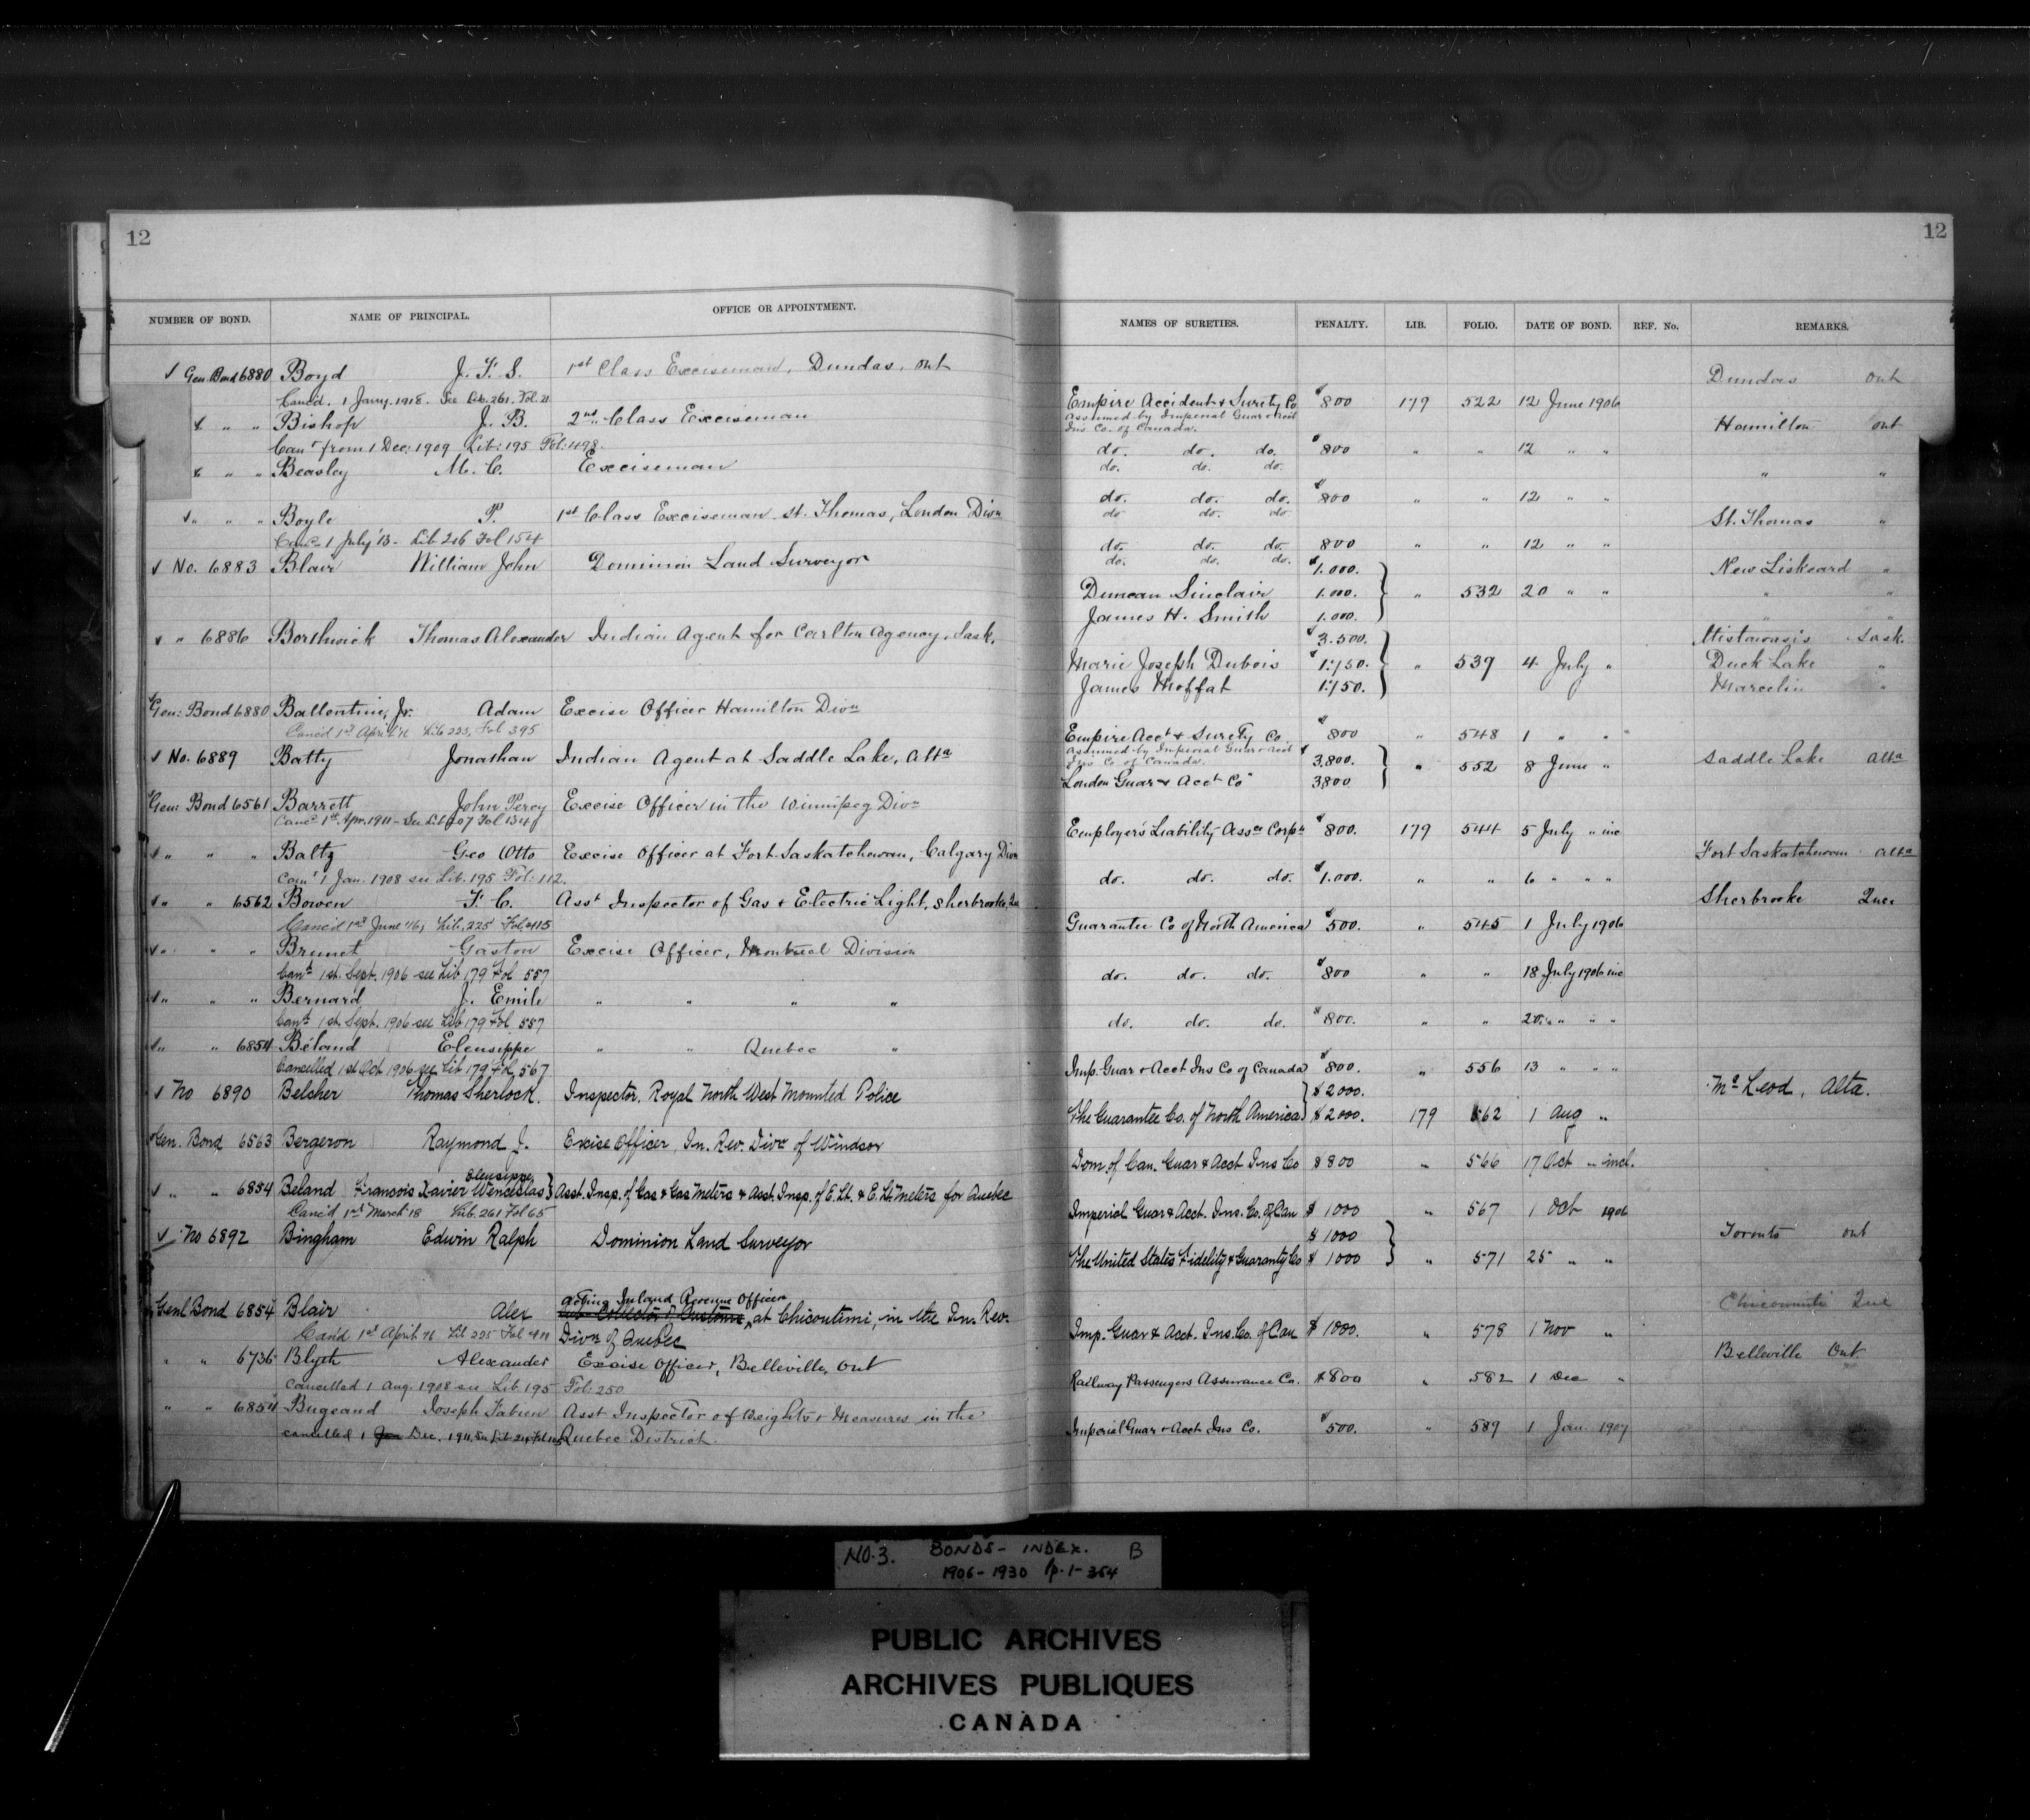 12
12
NUMBER OF BOND. NAME OF PRINCIPAL. OFFICE OR APPOINTMENT. NAMES OF SURETIES. PENALTY. LIB. FOLIO. DATE OF BOND. REF. No. REMARKS.
Gen. Bond 6880 Boyd J. F. S. 1st Class Exciseman, Dundas, Ont Dundas Ont
Canc'd. 1 Jany. 1918. See Lib. 261. Fol. 21 Empire Accident & Surety Co $800 179 522 12 June 1906
Assumed by Imperial Guar & Acct
Ins Co. of Canada.
" " Bishop J. B. 2nd Class Exciseman Hamilton Ont
from 1 Dec. 1909 Lib: 195 Fol: 498. do. do. do. $800 " " 12 " "
do. do. do.
" " Beasley M. C. Exciseman " "
do. do. do. $800 " " 12 " "
do do. do
" " " Boyle P. 1st Class Exciseman St. Thomas, London Divn St. Thomas "
Canc. 1 July '13 - Lib 216 Fol 154 do. do. do. 800 " " 12 " "
do. do. do.
No. 6883 Blair William John Dominion Land Surveyor $1.000. New Liskeard "
Duncan Sinclair 1.000. " 532 20 " " " "
James H. Smith 1.000. " "
" 6886 Borthwick Thomas Alexander Indian Agent for Carlton Agency, Sask. $3.500. Mistawasis Sask.
Marie Joseph Dubois $1.750. " 539 4 July " Duck Lake "
James Moffat 1.750. Marcelin "
Gen: Bond 6880 Ballentine, Jr. Adam Excise Officer Hamilton Divn
Canc'd 1st April Lib 225, Fol 395 Empire Acct & Surety Co $800 " 548 1 " "
Assumed by Imperial Guar & Acct
Ins Co of Canada.
No. 6889 Batty Jonathan Indian Agent at Saddle Lake, Alta $3,800. " 552 8 June " Saddle Lake Alta
London Guar & Acct Co 3800
Gen: Bond 6561 Barrett John Percy Excise Officer in the Winnipeg Divn
Canc. 1st Apr. 1911 - See Lib 207 Fol 134 Employer's Liability Assce Corpn $800. 179 544 5 July " inc
" " " Baltz Geo Otto Excise Officer at Fort Saskatchewan, Calgary Divn Fort Saskatchewan Alta
1 Jan. 1908 see Lib. 195 Fol: 112. do. do. do. $1.000. " " 6 " " "
" " 6562 Bowen F. C. Asst Inspector of Gas & Electric Light, Sherbrooke, Que Sherbrooke Quec
Canc'd 1st June '16, Lib. 225 Fol. 415 Guarantee Co of North America $500. " 545 1 July 1906
" " " Brunet Gaston Excise Officer, Montreal Division
1st. Sept. 1906 see Lib 179 Fol 557 do. do. do. $800 " " 18 July 1906 inc
" " " Bernard J. Emile " " " "
1st. Sept. 1906 see Lib 179 Fol 557 do. do. do. $800. " " 20 " " "
" " 6854 Béland Eleusippe " " Quebec "
Cancelled 1st Oct 1906 see Lib 179 Fol. 567 Imp. Guar & Acct Ins Co of Canada $800. " 556 13 " " "
No 6890 Belcher Thomas Sherlock. Inspector, Royal North West Mounted Police $2000. Mc Leod, Alta.
The Guarantee Co. of North America $2000. 179 562 1 Aug "
Gen. Bond 6563 Bergeron Raymond J. Excise Officer, In. Rev. Divn of Windsor
Dom. of Can. Guar & Acct Ins Co $800 " 566 17 Oct " incl.
Eleusippe
" " 6854 Beland Francois Xavier Wenceslas Asst. Insp. of Gas & Gas Meters & Asst. Insp. of E. Lt. & E. Lt. Meters for Quebec
Canc'd 1st March 18 Lib. 261 Fol 65 Imperial Guar & Acct. Ins. Co. of Can $1000 " 567 1 Oct 1906
No 6892 Bingham Edwin Ralph Dominion Land Surveyor $1000 Toronto Ont
The United States Fidelity & Guaranty Co $1000 " 571 25 " "
Acting Inland Revenue Officer
Genl Bond 6854 Blair Alex Sub-Collector of Customs, at Chicoutimi, in the In. Rev. Chicoutimi Que
Canc'd 1st April 16 Lib 225 Fol 411 Divn of Quebec Imp. Guar & Acct. Ins. Co. of Can $1000. " 578 1 Nov "
" " 6736 Blyth Alexander Excise Officer, Belleville, Ont Belleville Ont
Cancelled 1 Aug. 1908 see Lib. 195 Fol: 250 Railway Passengers Assurance Co. $800 " 582 1 Dec "
" " 6854 Bugeaud Joseph Fabien Asst Inspector of Weights & Measures in the
cancelled 1 Jan Dec. 1911 Quebec District. Imperial Guar & Acct Ins Co. $500. " 589 1 Jan 1907
NO. 3. BONDS - INDEX. B
1906 - 1930 p. 1 - 354
PUBLIC ARCHIVES
ARCHIVES PUBLIQUES
CANADA